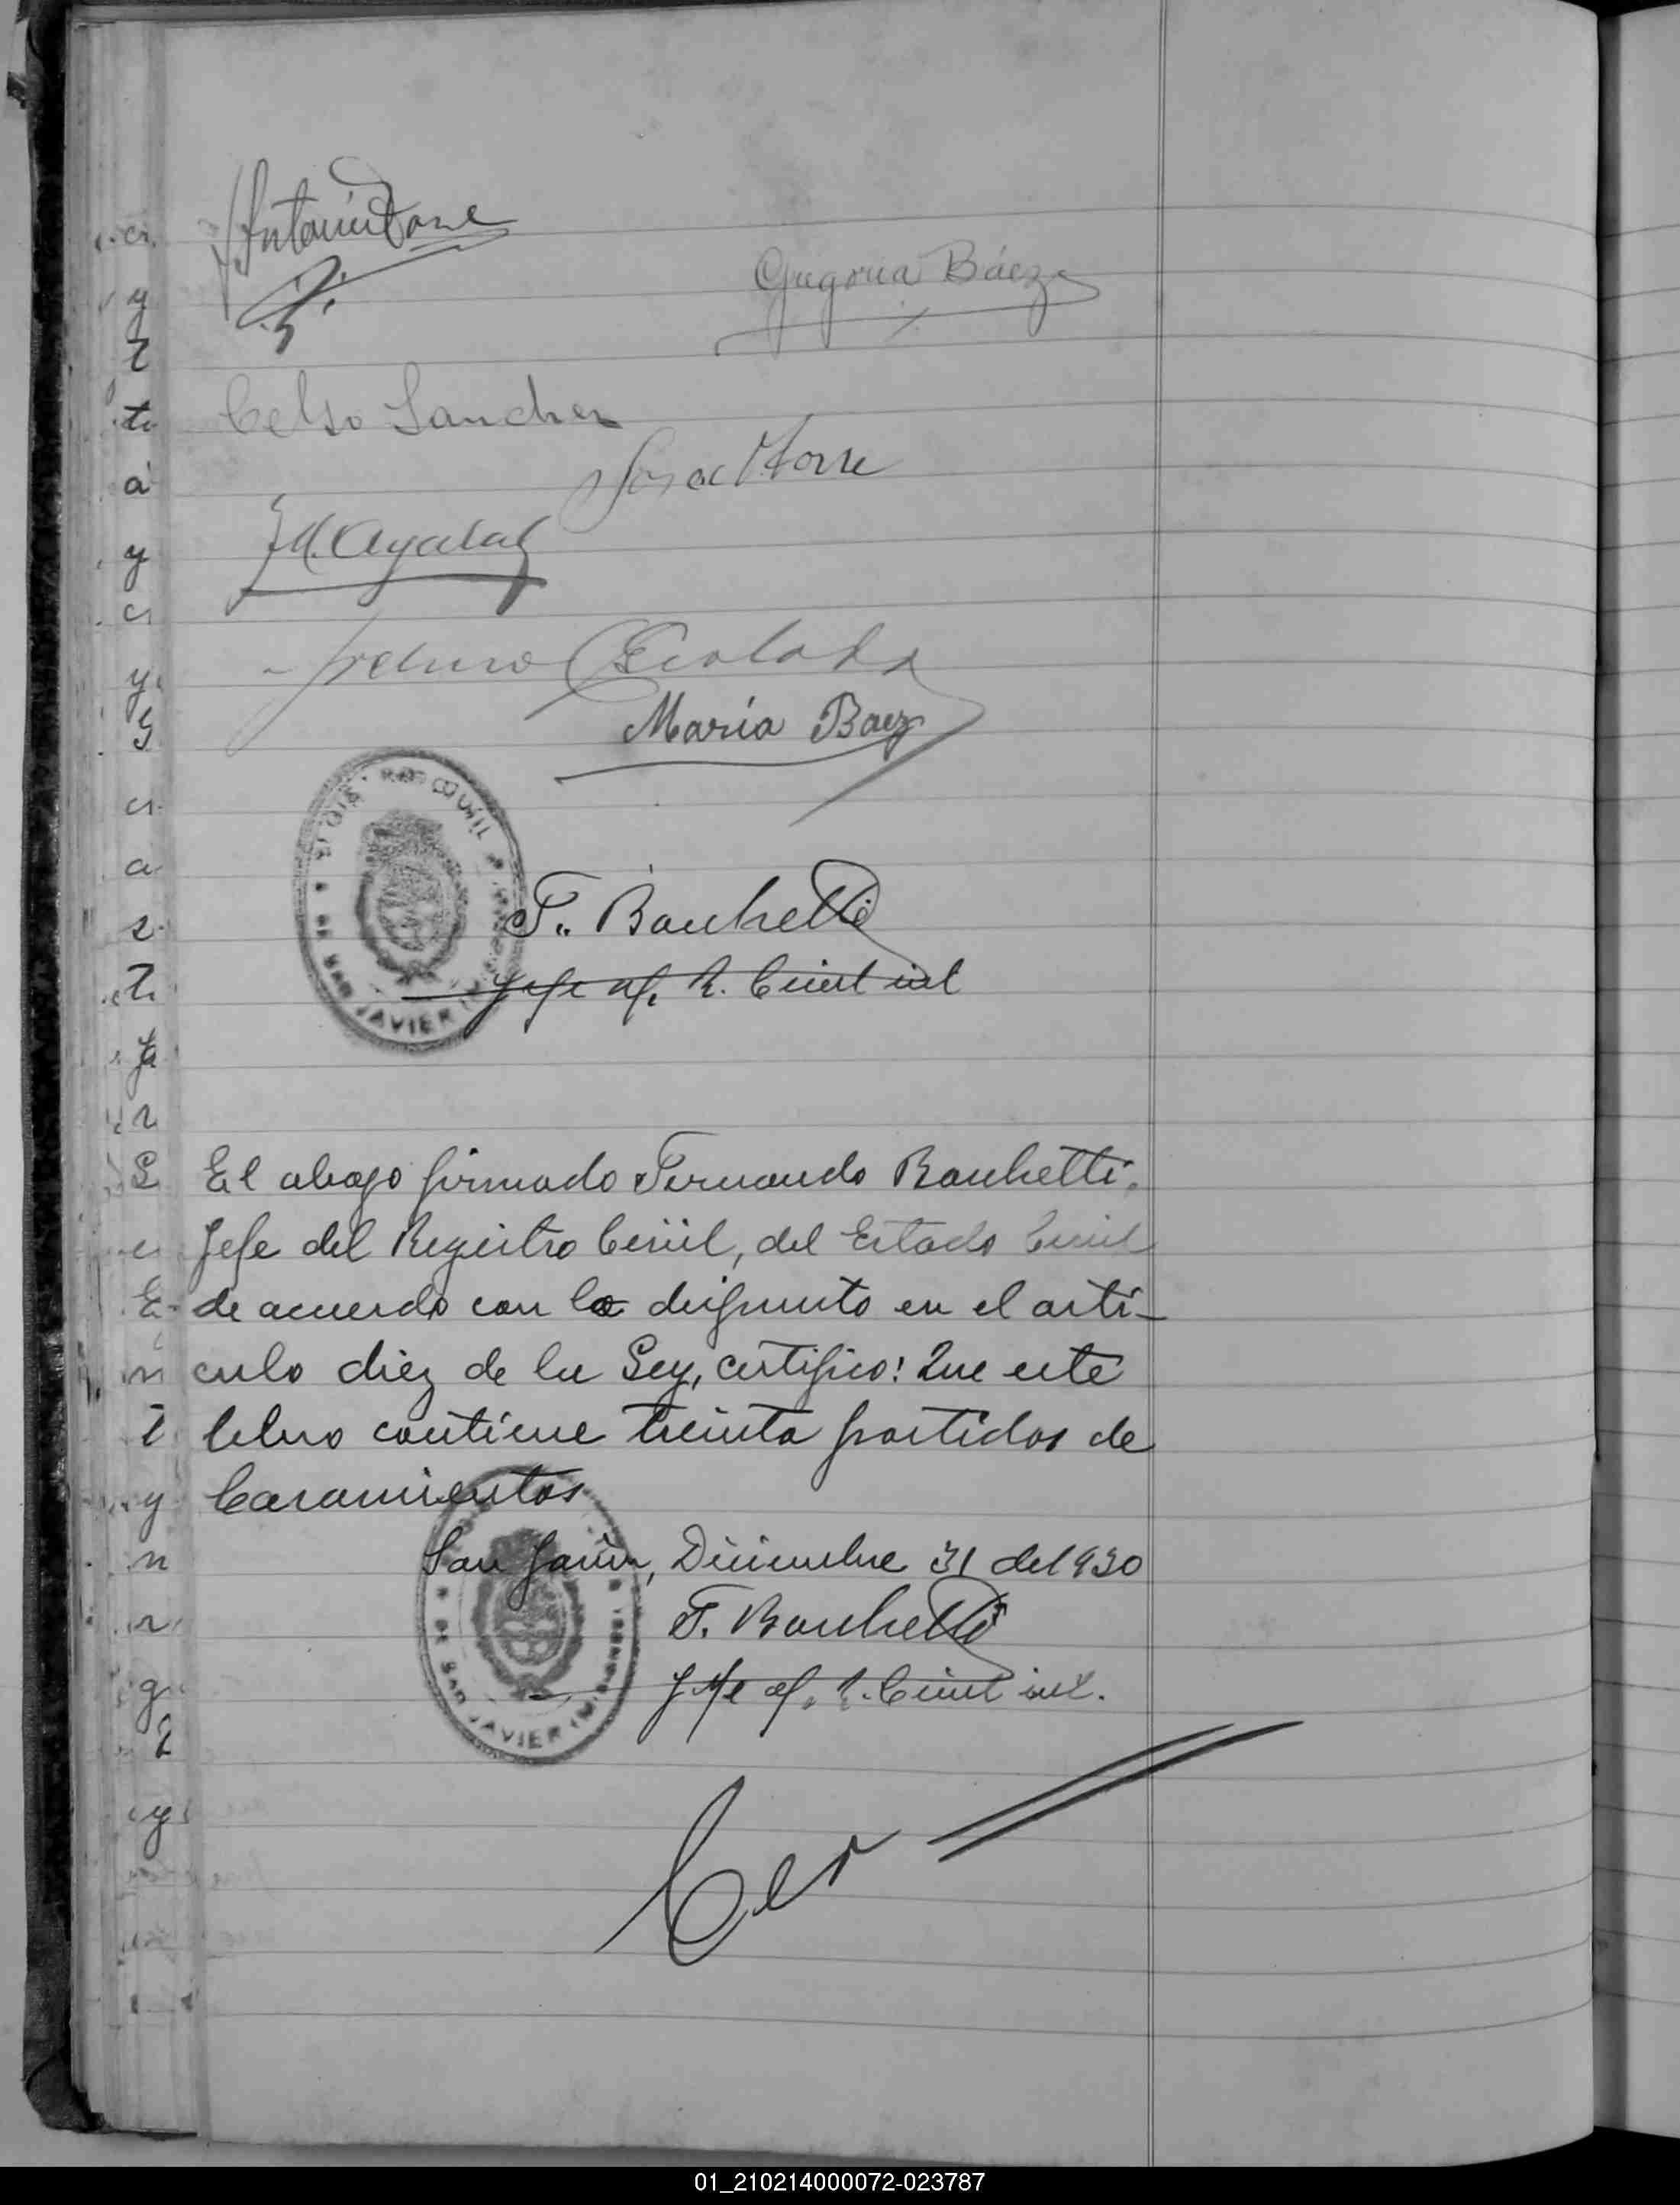 Gregoria Báez
Celso Sanchez
José Torre
M. Ayala
Arturo Escalada
Maria Baez
F. Banchetti
Jefe of. R. Civil int
El abajo firmado Fernando Banchetti,
Jefe del Registro Civil, del Estado Civil
de acuerdo con lo dispuesto en el arti-
culo diez de la Ley, certifico: Que este
libro contiene treinta partidas de
Casamientos
San Javier, Diciembre 31 del 930
F. Banchetti
Jefe of. R. Civil int.
DE SAN JAVIER (MISIONES)
01_210214000072-023787